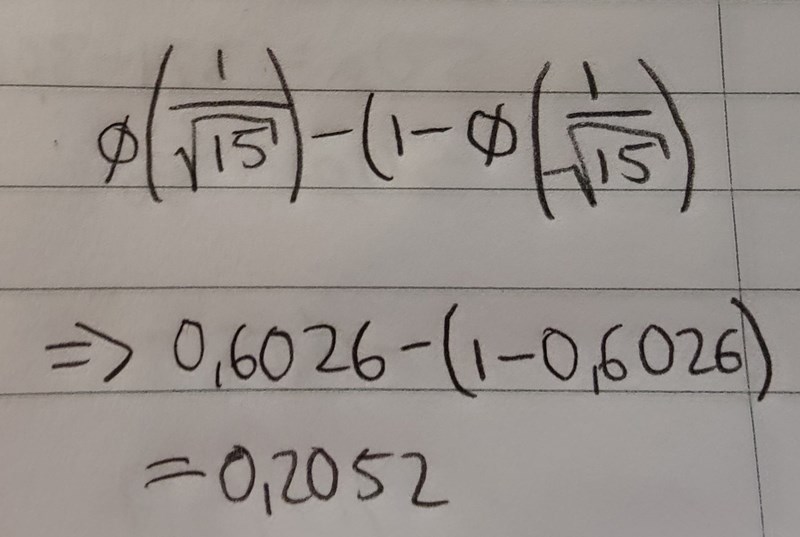 ø(1/√15) - (1 - ø(1/√15)
=> 0,6026 - (1 - 0,6026)
= 0,2052